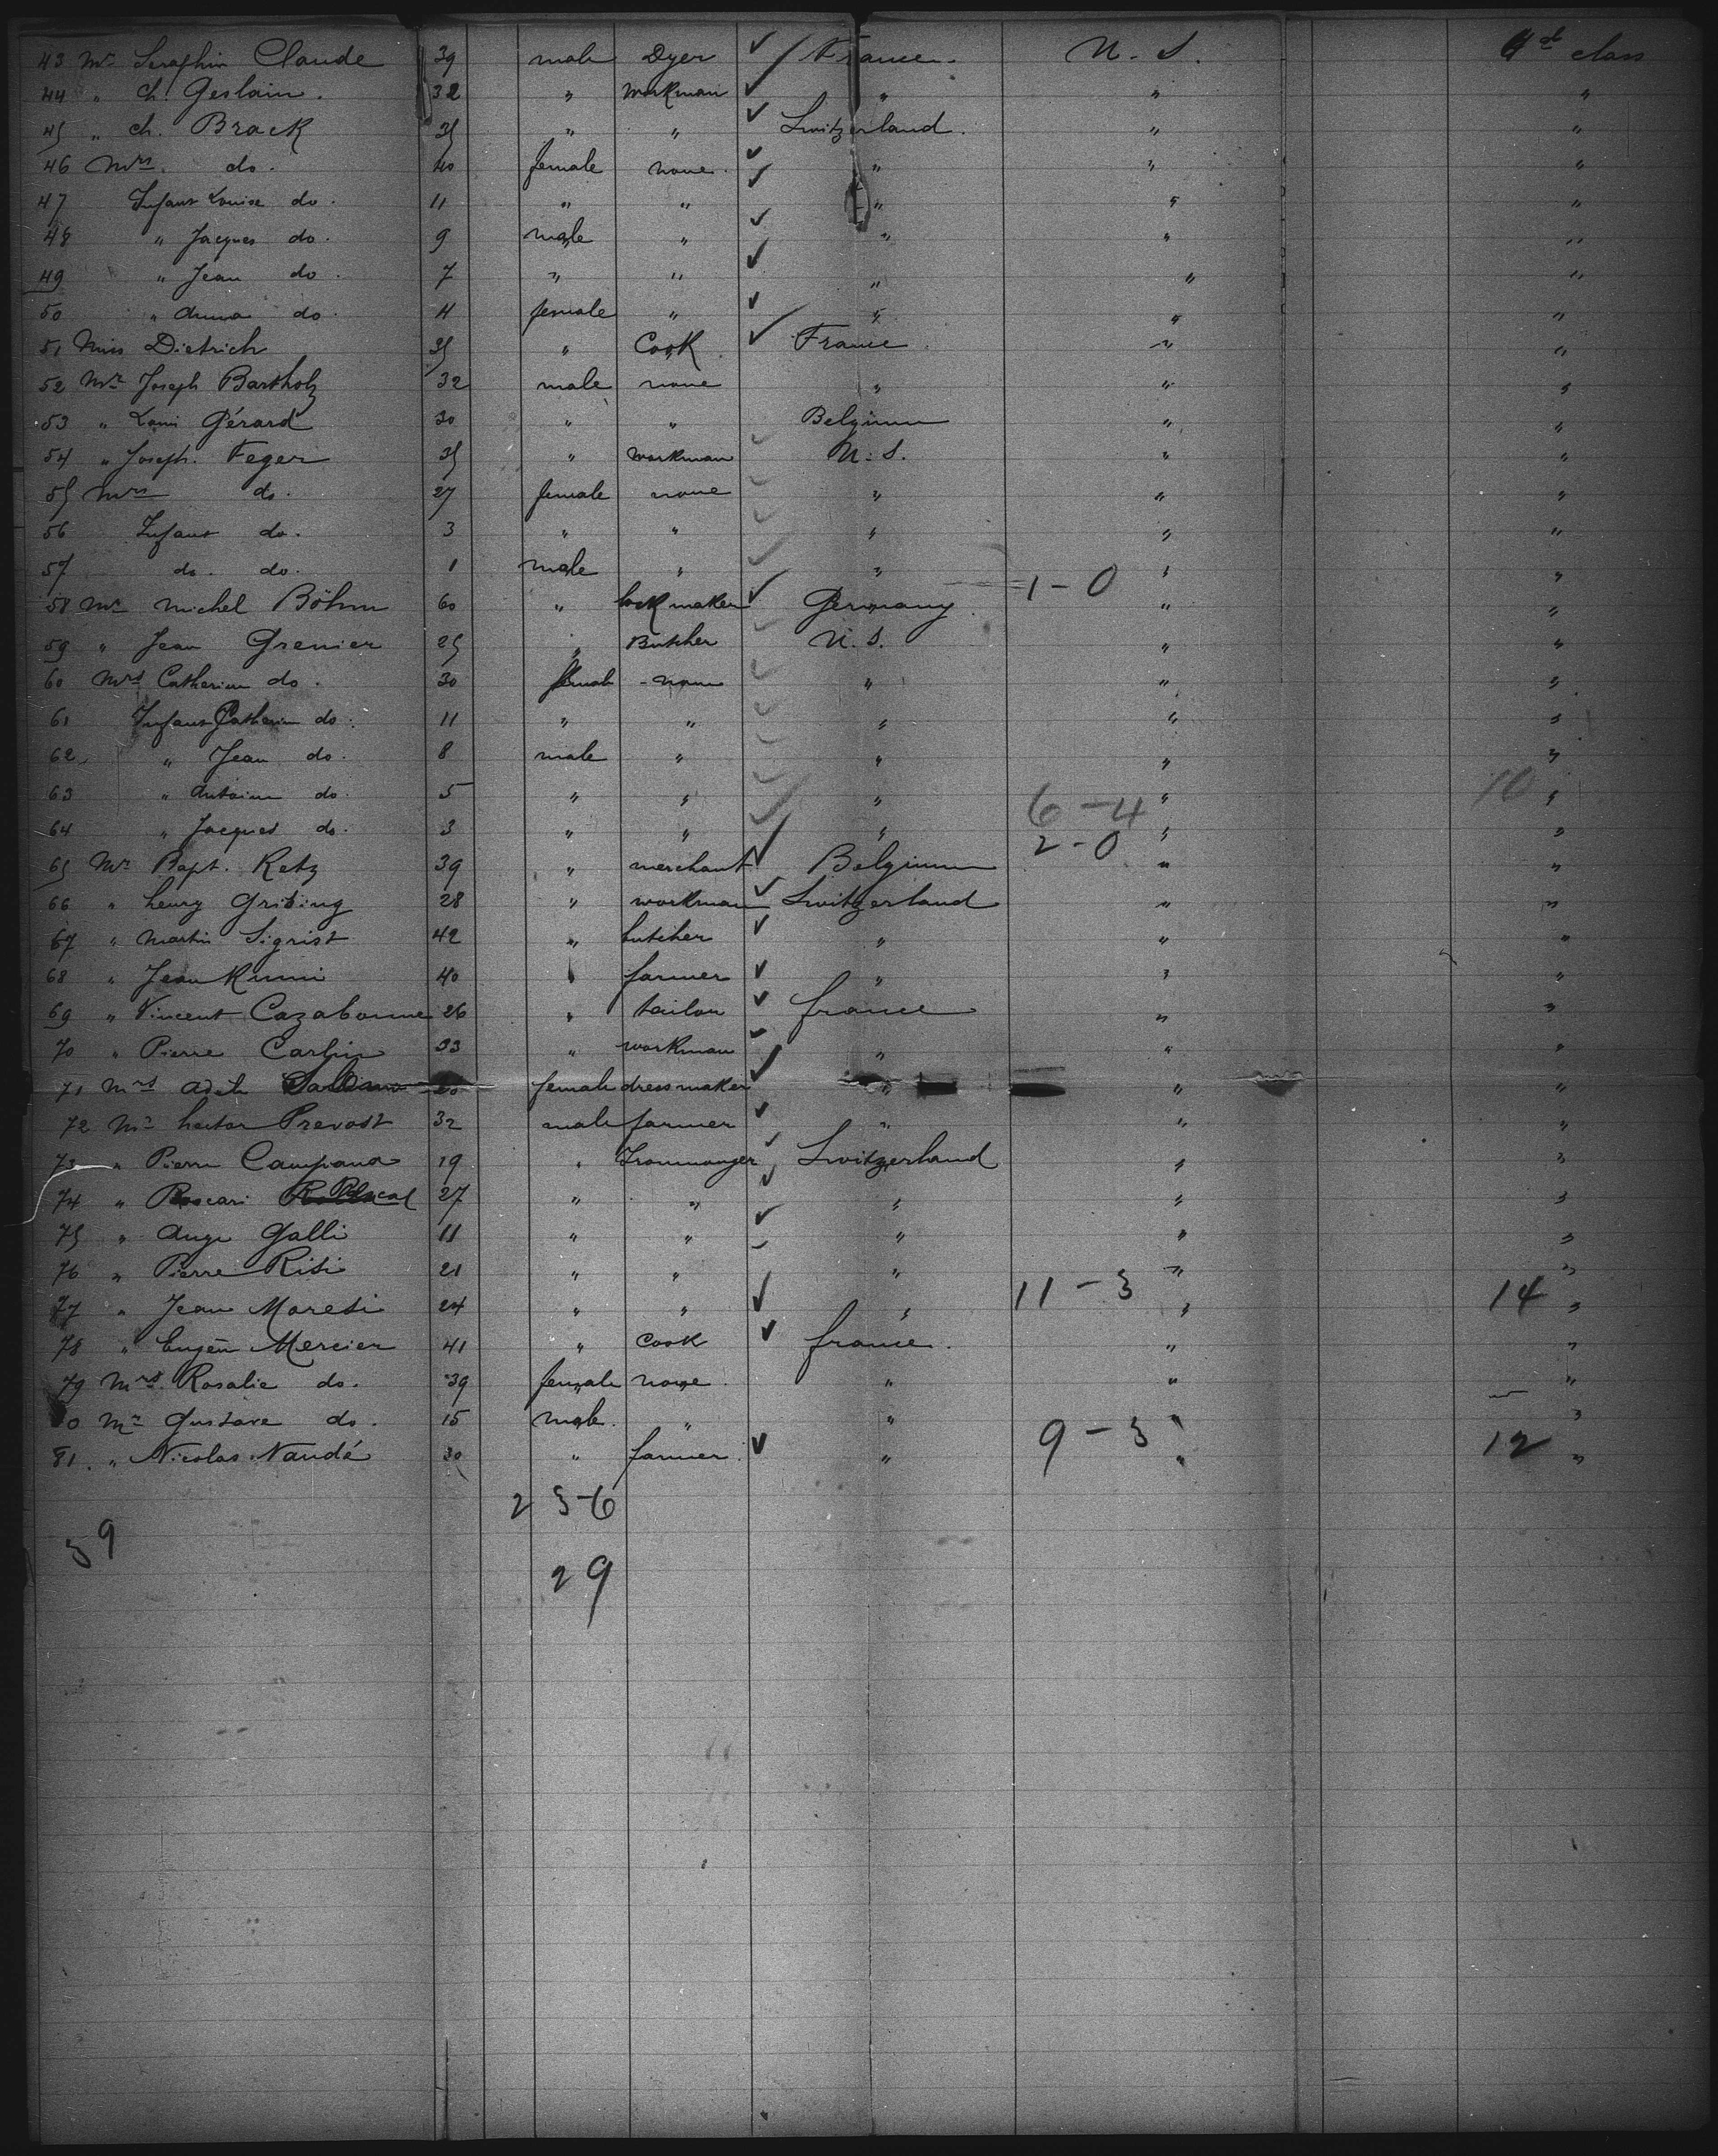 43 Mr Seraphin Claude 39 male Dyer ✓ France. U. S. 4d class
44 " Ch. Geslain. 32 " workman ✓ " " "
45 " Ch. Brack 35 " " ✓ Switzerland. " "
46 Mrs. do. 40 female none. ✓ " " "
47 Infant Louise do. 11 " " ✓ " " "
48 " Jacques do. 9 male " ✓ " " "
49 " Jean do. 7 " " ✓ " " "
50 " Anna do. 4 female " ✓ " " "
51 Miss Dietrich 35 " Cook. ✓ France. " "
52 Mr Joseph Bartholz 32 male none " " "
53 " Louis Gérard 30 " " Belgium " "
54 " Joseph. Feger 35 " workman ✓ U. S. " "
55 Mrs do. 27 female none ✓ " " "
56 Infant do. 3 " " ✓ " " "
57 do. do. 1 male " ✓ " 1-0 " "
58 Mr Michel Böhm 60 " lock maker ✓ Germany. " "
59 " Jean Grenier 25 " Butcher ✓ U. S. " "
60 Mrs Catherine do. 30 female none ✓ " " "
61 Infant Catherine do. 11 " " ✓ " " "
62 " Jean do. 8 male " ✓ " " "
63 " Antoine do. 5 " " ✓ " 6-4 " 10 "
64 " Jacques do. 3 " " ✓ " 2-0 " "
65 Mr Bapt. Retz 39 " merchant ✓ Belgium " "
66 " henry Gribing 28 " workman ✓ Switzerland " "
67 " Martin Sigrist 42 " butcher ✓ " " "
68 " Jean Kummi 40 " farmer ✓ " " "
69 " Vincent Cazabonne 26 " tailor ✓ france " "
70 " Pierre Carlin 33 " workman ✓ " " "
71 Mrs Adele female dressmaker ✓ " " "
72 Mr hector Prevost 32 male farmer ✓ " " "
73 " Pierre Campana 19 " Ironmonger ✓ Switzerland " "
74 " 27 " " ✓ " " "
75 " Ange Galli 11 " " ✓ " " "
76 " Pierre Risi 21 " " ✓ " " "
77 " Jean Moresi 24 " " ✓ " 11-3 " 14 "
78 " Eugène Mercier 41 " Cook ✓ france. " "
79 Mrs. Rosalie do. 39 female none. " " "
80 Mr Gustave do. 15 male. " " " "
81. " Nicolas Naudé 30 " farmer. ✓ " 9-3 " 12 "
23-6
59
29